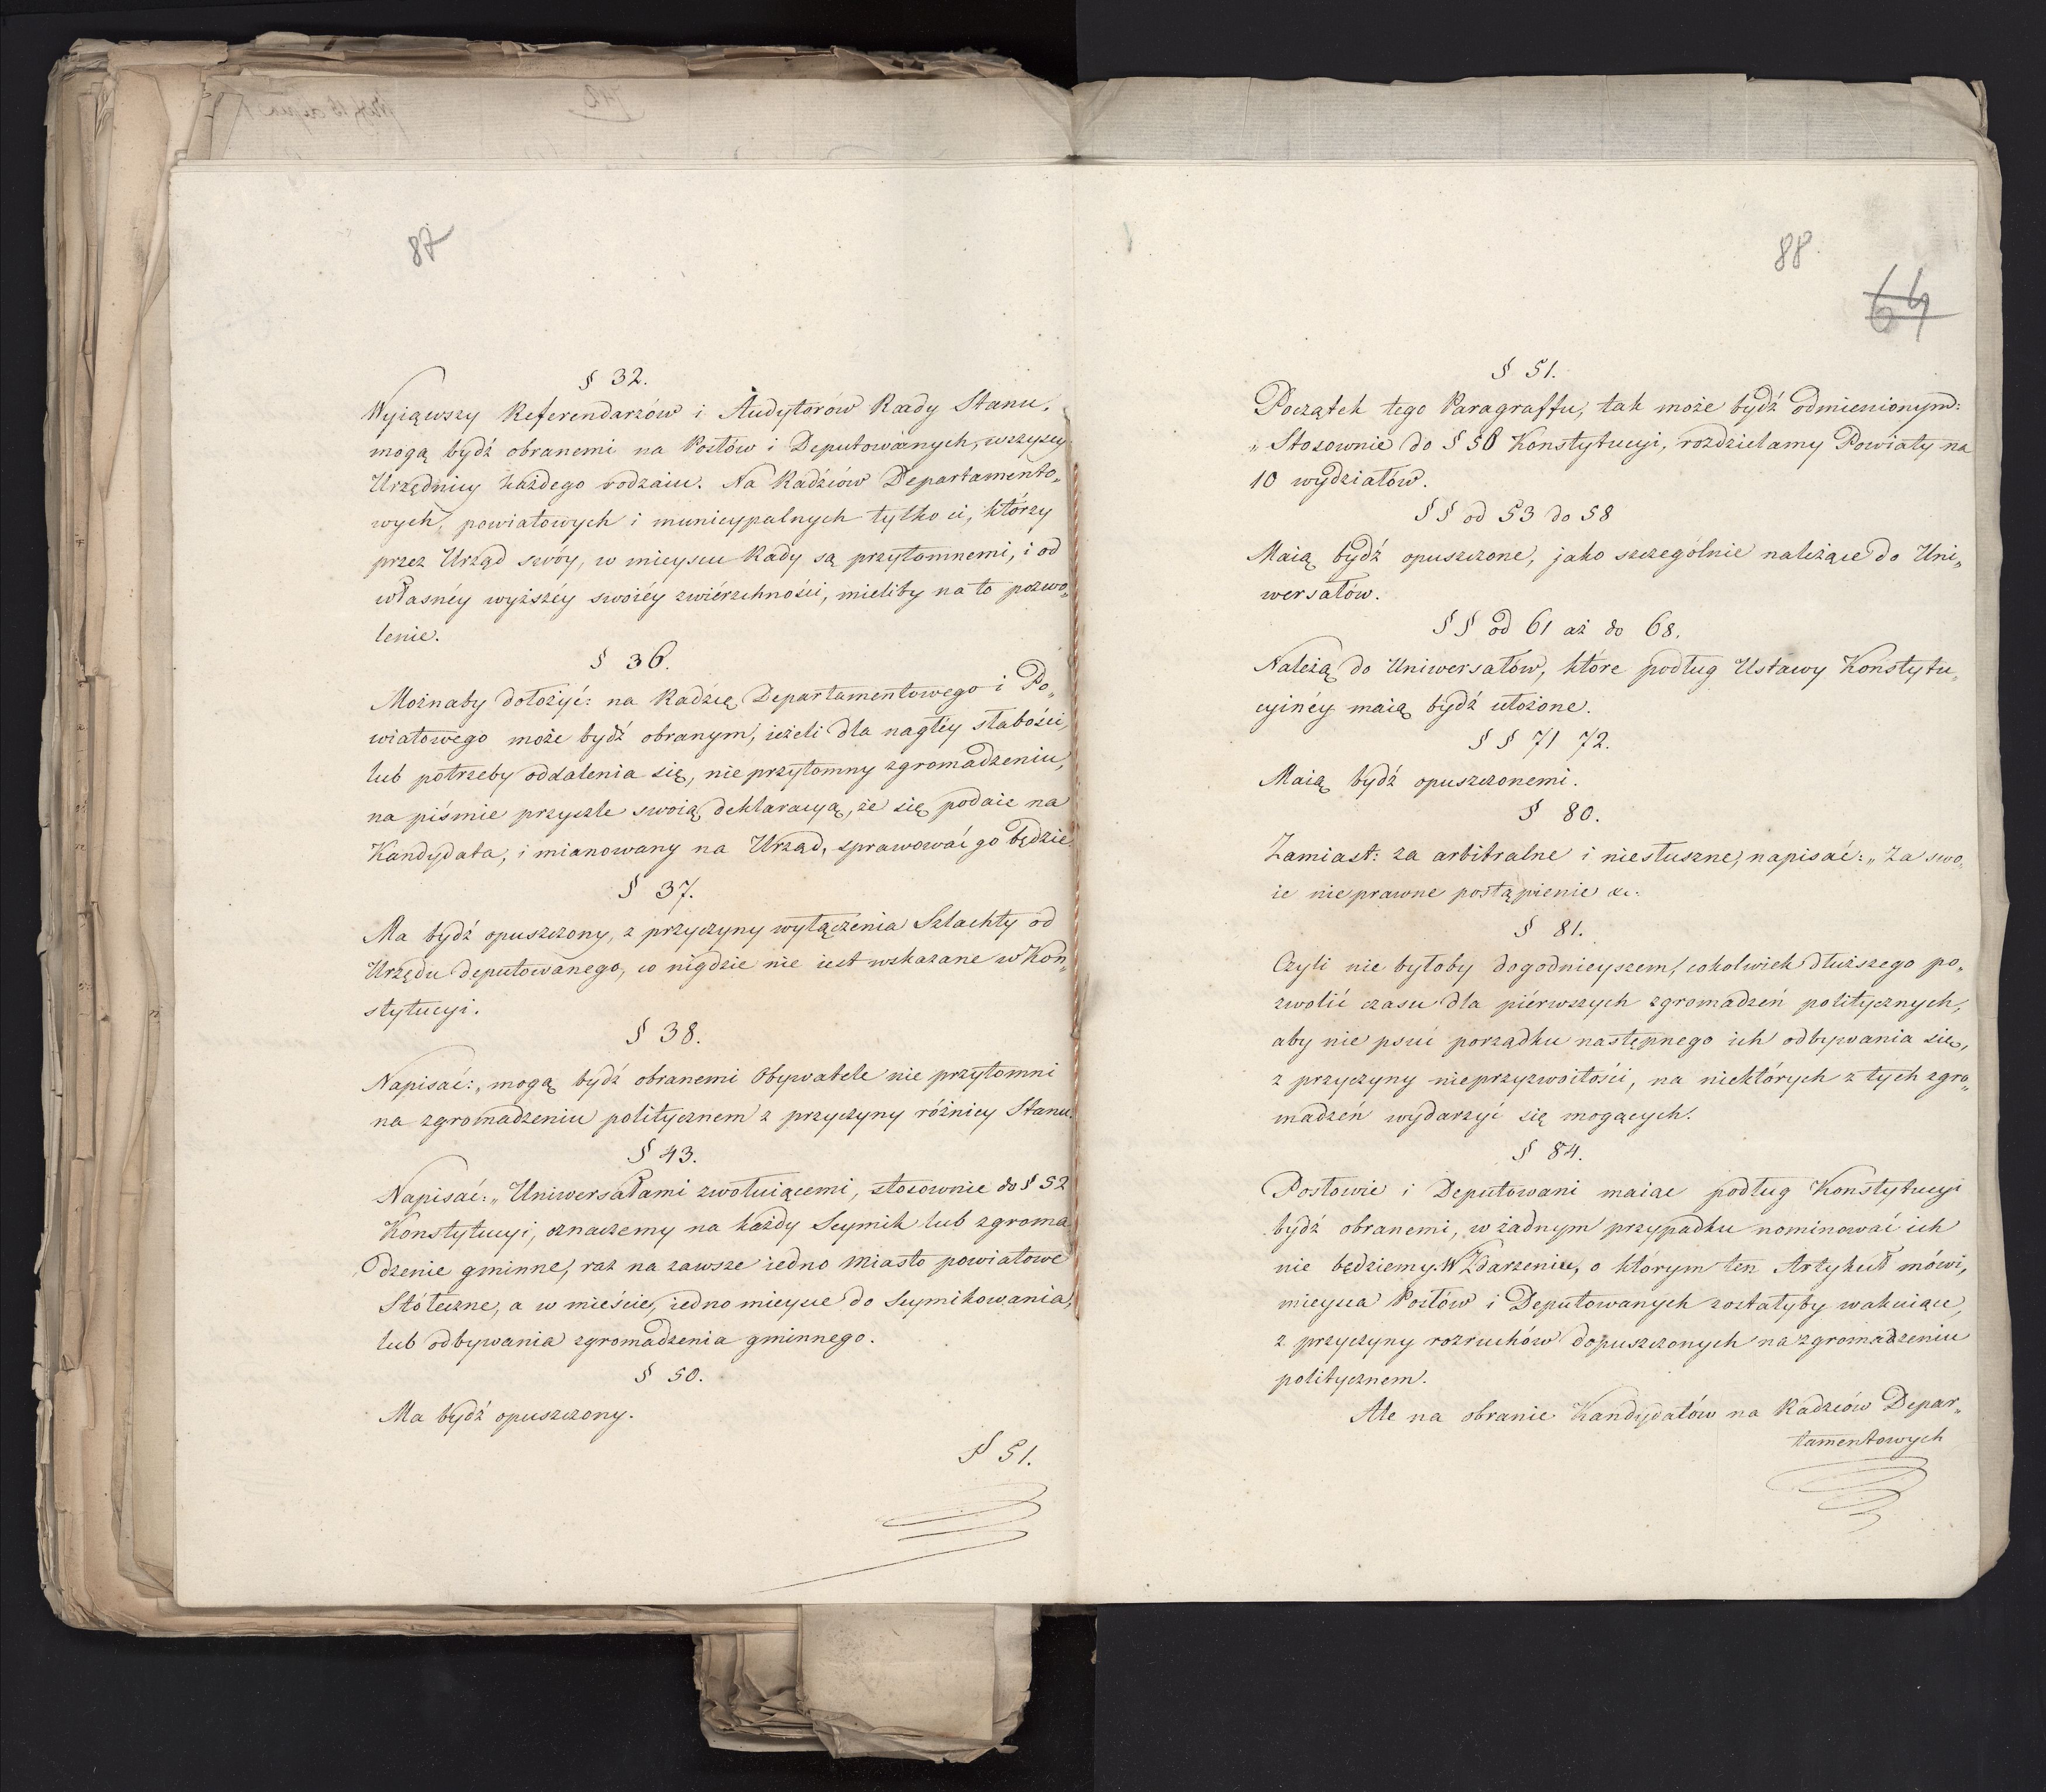 87
§ 32.
Wyiąwszy Referendarzów i Audytorów Rady Stanu,
mogą bydź obranemi na Posłów i Deputowanych, wszyscy
Urzędnicy każdego rodzaiu. Na Radźców Departamento„
wych, powiatowych i municypalnych tylko ci, którzy
przez Urząd swóy, w mieyscu Rady są przytomnemi, i od
własnéy wyższéy swoiéy zwiérzchności, mieliby na to pozwo„
lenie.
§ 36.
Możnaby dołożyć: na Radźcę Departamentowego i Po„
wiatowego może bydź obranym, ieżeli dla nagłéy słabości,
lub potrzeby oddalenia się, nie przytomny zgromadzeniu,
na piśmie przyszle swoią deklaracyą, że się podaie na
Kandydata, i mianowany na Urząd, sprawować go będzie
§ 37.
Ma bydź opuszczony, z przyczyny wyłączenia Szlachty od
Urzędu deputowanego, co nigdzie nie iest wskazane w Kon„
stytucyi.
§ 38.
Napisać: „mogą bydź obranemi Obywatele nie przytomni
na zgromadzeniu politycznem z przyczyny różnicy Stanu.
§ 43.
Napisać: „Uniwersałami zwołuiącemi, stosownie do § 52
Konstytucyi, oznaczemy na każdy Seymik lub zgroma
dzenie gminne, raz na zawsze iedno miasto powiatowe
Stółeczne, a w mieście, iedno mieysce do Seymikowania,
lub odbywania zgromadzenia gminnego.
§ 50.
Ma bydź opuszczony.
§ 51.
88.
64
§ 51.
Początek tego Paragraffu, tak może bydź odmienionym:
„Stosownie do § 56 Konstytucyi, rozdzielamy Powiaty na
10 wydziałów.
§ § od 53 do 58
Maią bydź opuszczone, jako szczególnie należące do Uni„
wersałów.
§ § od 61 aż do 68.
Należą do Uniwersałów, które podług Ustawy Konstytu„
cyinéy maią bydź ułożone.
§ § 71 72.
Maią bydź opuszczonemi.
§ 80.
Zamiast: za arbitralne i niesłuszne, napisać: „Za swo„
ie nieprawne postąpienie &c.
§ 81.
Czyli nie byłoby dogodnieyszem, cokolwiek dłuższego po„
zwolić czasu dla piérwszych zgromadzeń politycznych,
aby nie psuć porządku następnego ich odbywania się,
z przyczyny nieprzyzwoitości, na niektórych z tych zgro„
madzeń wydarzyć się mogących.
§ 84.
Posłowie i Deputowani maiąc podług Konstytucyi
bydź obranemi, w żadnym przypadku nominować ich
nie będziemy. W Zdarzeniu, o którym ten Artykuł mówi,
mieysca Posłów i Deputowanych zostałyby wakuiące,
z przyczyny rozruchów dopuszczonych na zgromadzeniu
politycznem.
Ale na obranie Kandydatów na Radźców Depar„
tamentowych